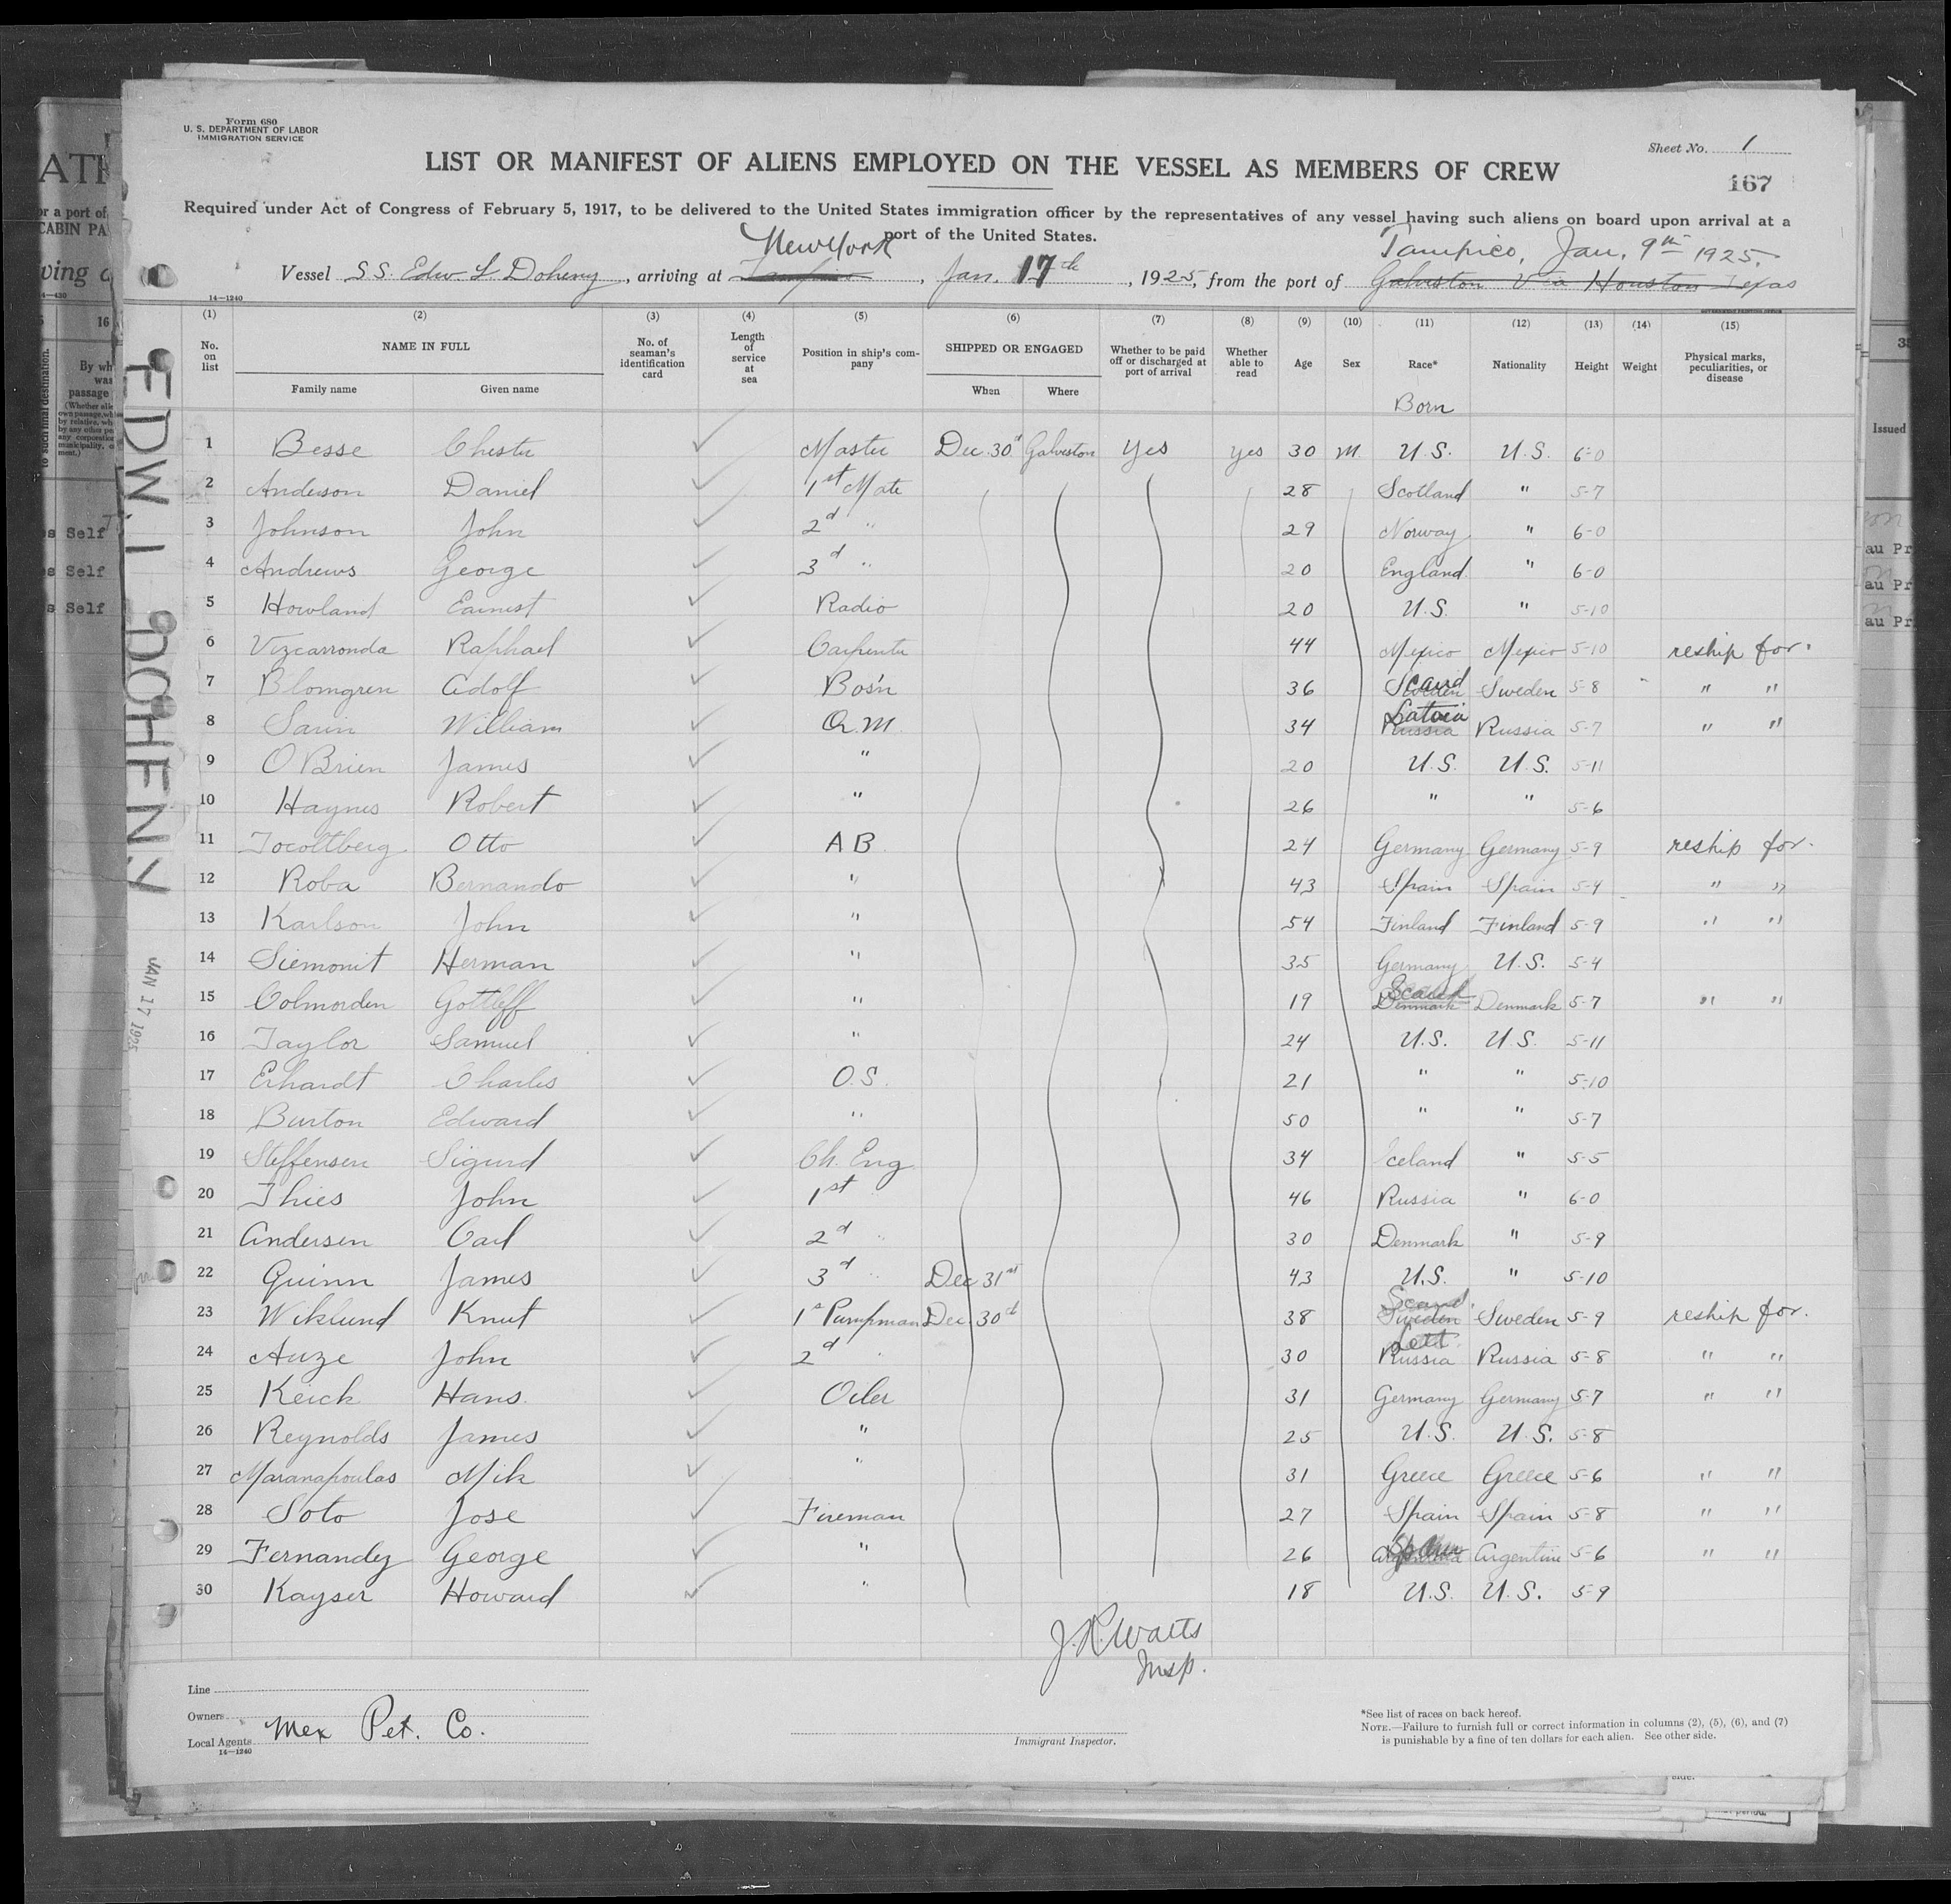 Form 680
U. S. DEPARTMENT OF LABOR
IMMIGRATION SERVICE
Sheet No. 1
LIST OR MANIFEST OF ALIENS EMPLOYED ON THE VESSEL AS MEMBERS OF CREW
167
Required under Act of Congress of February 5, 1917, to be delivered to the United States immigration officer by the representatives of any vessel having such aliens on board upon arrival at a
port of the United States.
New York
Tampico, Jan. 9th 1925.
Vessel S.S. Edw. L Doheny, arriving at Tampico, Jan. 17th, 1925, from the port of Galveston Via Houston Texas
14—1240
(1) (2) (3) (4) (5) (6) (7) (8) (9) (10) (11) (12) (13) (14) (15)
No. on list NAME IN FULL Family name Given name No. of seaman's identification card Length of service at sea Position in ship's company SHIPPED OR ENGAGED When Where Whether to be paid off or discharged at port of arrival Whether able to read Age Sex Race* Nationality Height Weight Physical marks, peculiarities, or disease
Born
1 Besse Chester Master Dec. 30th Galveston Yes yes 30 M. U.S. U.S. 6-0
2 Anderson Daniel 1st Mate 28 Scotland " 5-7
3 Johnson John 2d " 29 Norway " 6-0
4 Andrews George 3d " 20 England " 6-0
5 Howland Earnest Radio 20 U.S. " 5-10
6 Vizcarronda Raphael Carpenter 44 Mexico Mexico 5-10 reship for.
7 Blomgren Adolf Bos'n 36 Sweden Scand Sweden 5-8 " "
8 Sarin William Q.M. 34 Russia Latvia Russia 5-7 " "
9 O'Brien James " 20 U.S. U.S. 5-11
10 Haynes Robert " 26 " " 5-6
11 Tocoltberg Otto A B 24 Germany Germany 5-9 reship for.
12 Roba Bernando " 43 Spain Spain 5-4 " "
13 Karlson John " 54 Finland Finland 5-9 " "
14 Siemonit Herman " 35 Germany U.S. 5-4
15 Colmorden Gottleff " 19 Denmark Scand Denmark 5-7 " "
16 Taylor Samuel " 24 U.S. U.S. 5-11
17 Erhardt Charles O.S. 21 " " 5-10
18 Burton Edward " 50 " " 5-7
19 Steffensen Sigurd Ch. Eng 34 Iceland " 5-5
20 Thies John 1st " 46 Russia " 6-0
21 Andersen Carl 2d " 30 Denmark " 5-9
22 Quinn James 3d " Dec 31st 43 U.S. " 5-10
23 Wiklund Knut 1st Pumpman Dec. 30th 38 Sweden Scand. Sweden 5-9 reship for.
24 Auze John 2d " 30 Russia Lett Russia 5-8 " "
25 Keick Hans Oiler 31 Germany Germany 5-7 " "
26 Reynolds James " 25 U.S. U.S. 5-8
27 Maranapoulas Mik " 31 Greece Greece 5-6 " "
28 Soto Jose Fireman 27 Spain Spain 5-8 " "
29 Fernandez George " 26 Argentine 5-6 " "
30 Kayser Howard " 18 U.S. U.S. 5-9
J. R. Watts
Insp.
Line
Owners
Local Agents Mex Pet. Co.
14—1240
Immigrant Inspector.
*See list of races on back hereof.
NOTE.—Failure to furnish full or correct information in columns (2), (5), (6), and (7)
is punishable by a fine of ten dollars for each alien. See other side.
EDW. L DOHENY
JAN 17 1925